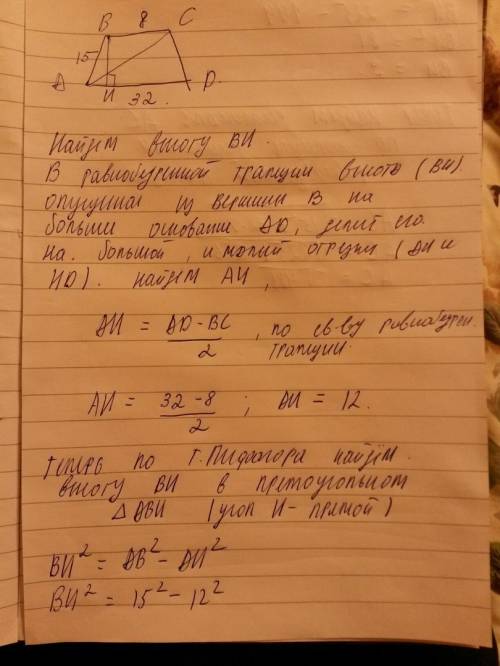 B 8 C
15
A H 32 D
Найдём высоту BH.
В равнобедренной трапции высота (BH).
опущенная из вершины B на
большее основание AD, делит его
на. большой, и малый отрезки (AH и
HD). Найдём AH,
AH = AD-BC / 2 , по св-ву равнобедрен.
трапции.
AH = 32-8 / 2 ; AH = 12.
Теперь по т. Пифагора найдём
высоту BH в прямоугольном
△ ABH (угол H - прямой)
BH² = AB² - AH²
BH² = 15² - 12²